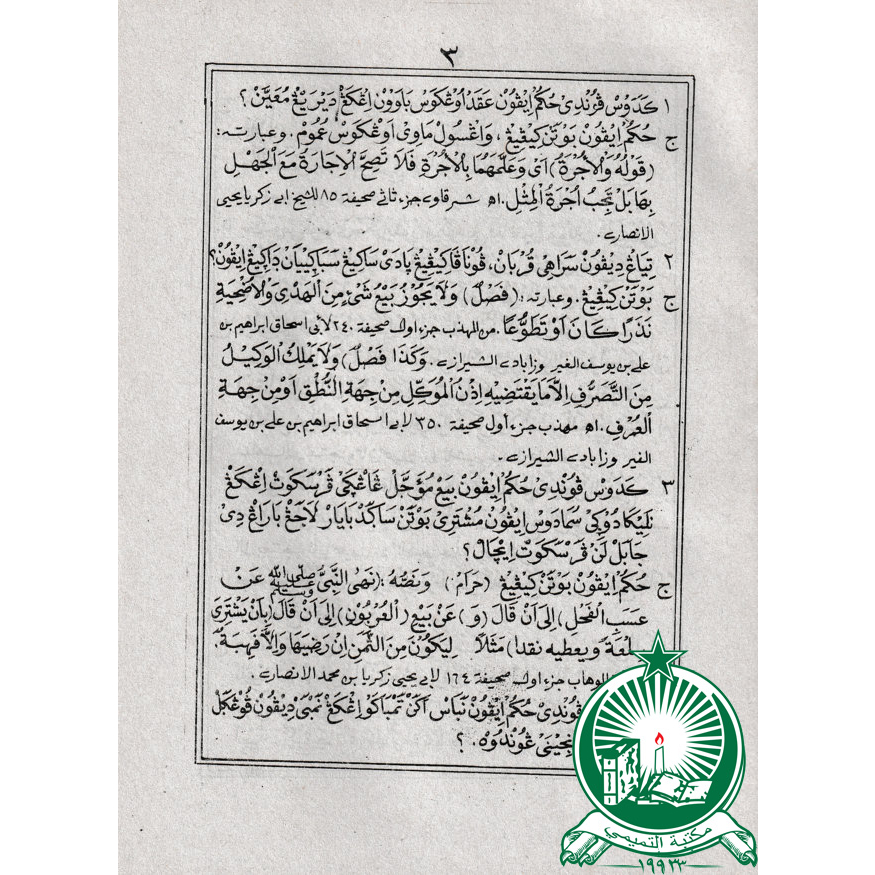 ٣
١ كَدَوْسْ ڤُرُنْدِیْ حُكُمْ اِيْڤُونْ عَقَدْ اُوڠْكَوسْ بَاوَوْنْ اِڠْكَڠْ دَيْرَيڠْ مُعَيَّنْ ؟
ج حُكُمْ اِيْڤُونْ بَوْتَنْ كِيڠِيڠْ ، وَاڠْسُولْ مَاوِیْ اَوڠْكَوسْ عُمُومْ . وعبارته :
(قَوْلُهُ وَالْاُجْرَةُ) اَیْ وَعَلَّمَهُمَا بِالْاُجْرَةِ فَلَا تَصِحُّ الْاِجَارَةُ مَعَ الْجَهْلِ
بِهَا بَلْ تَجِبُ اُجْرَةُ الْمِثْلِ . اه شرقاوي جزء ثاني صحيفة ٨٥ للشيخ ابي زكريا يحيى
الانصاري .
٢ تِيَاڠْ دِيْڤُونْ سَرَاهِیْ قُرْبَانْ ، ڤُونَاڤَا كِيڠِيڠْ يَادَیْ سَاكِيڠْ سَبَاكِييَانْ دَاكِيڠْ اِيْڤُونْ؟
ج بَوْتَنْ كِيڠِيڠْ . وعبارته : (فَصْلٌ) وَلَا يَجُوْزُ بَيْعُ شَیْءٍ مِنَ الْهَدْیِ وَالْاُضْحِيَةِ
نَذْرًا كَانَ اَوْ تَطَوُّعًا . من المهذب جزء اول صحيفة ٢٤٠ لأبي اسحاق ابراهيم بن
علي بن يوسف الغير وزابادي الشيرازي . وَكَذَا فَصْلٌ) وَلَا يَمْلِكُ الْوَكِيْلُ
مِنَ التَّصَرُّفِ اِلَّا مَا يَقْتَضِيْهِ اِذْنُ الْمُوَكِّلِ مِنْ جِهَةِ النُّطْقِ اَوْ مِنْ جِهَةِ
الْعُرْفِ . اه مهذب جزء أول صحيفة ٣٥٠ لابي اسحاق ابراهيم بن علي بن يوسف
الفير وزابادي الشيرازي .
٣ كَدَوْسْ ڤُوندِیْ حُكُمْ اِيْڤُونْ بَيْعْ مُؤَجَّلْ ڠَاڠْڮَیْ ڤَرْسَكَوتْ اِڠْكَڠْ
نَلِيكَا دُوكِیْ سُمَادَوسْ اِيْڤُونْ مُشْتَرِیْ بَوْتَنْ سَاڮَدْ بَايَارْ لَاجَڠْ بَارَاڠْ دِیْ
جَابَلْ لَنْ ڤَرْسَكَوتْ اِيچَالْ ؟
ج حُكُمْ اِيْڤُونْ بَوْتَنْ كِيڠِيڠْ (حَرَامْ) وَنَصُّهُ : (نَهَى النَّبِیُّ صلى الله عليه وسلم عَنْ
عَسَبِ الْفَحْلِ) اِلَى اَنْ قَالَ (وَ) عَنْ بَيْعِ (الْعُرْبُوْنِ) اِلَى اَنْ قَالَ (بِاَنْ يَشْتَرِیَ
سِلْعَةً وَيعطيه نقدا) مَثَلًا لِيَكُوْنَ مِنَ الثَّمَنِ اِنْ رَضِيَهَا وَاِلَّا فَهِبَةٌ .
الوهاب جزء اول صحيفة ١٦٤ لابي يحيى زكريا بن محمد الانصاري .
ڤُوندِیْ حُكُمْ اِيْڤُونْ نَبَاسْ اَكَنْ تَمْبَاكَوْ اِڠْكَڠْ نَمْبَیْ دِيْڤُونْ ڤُوڠْكَلْ
ڠُونْدُوهْ . ؟
مكتبة التميمي
١٩٩٣٣